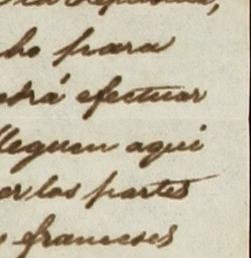 cho para
odrá efectuar
lleguen aqui
er los partes
s franceses